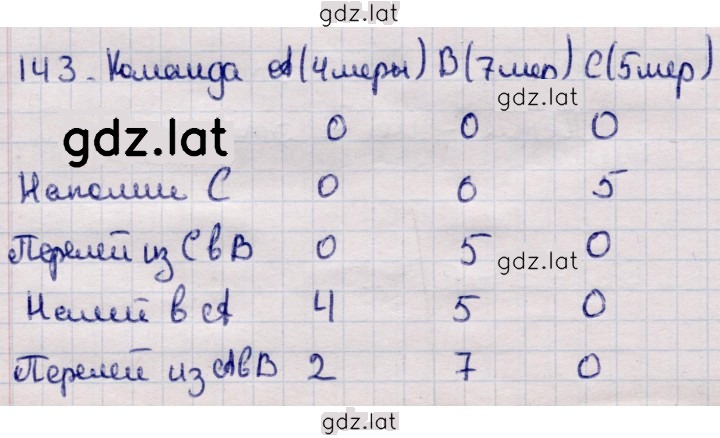 gdz.lat
143. Команда А(4меры) В(7мер) С(5мер)
gdz.lat
gdz.lat 0 0 0
Наполни С 0 0 5
Перелей из С в В 0 5 0
gdz.lat
Налей в А 4 5 0
Перелей из А в В 2 7 0
gdz.lat